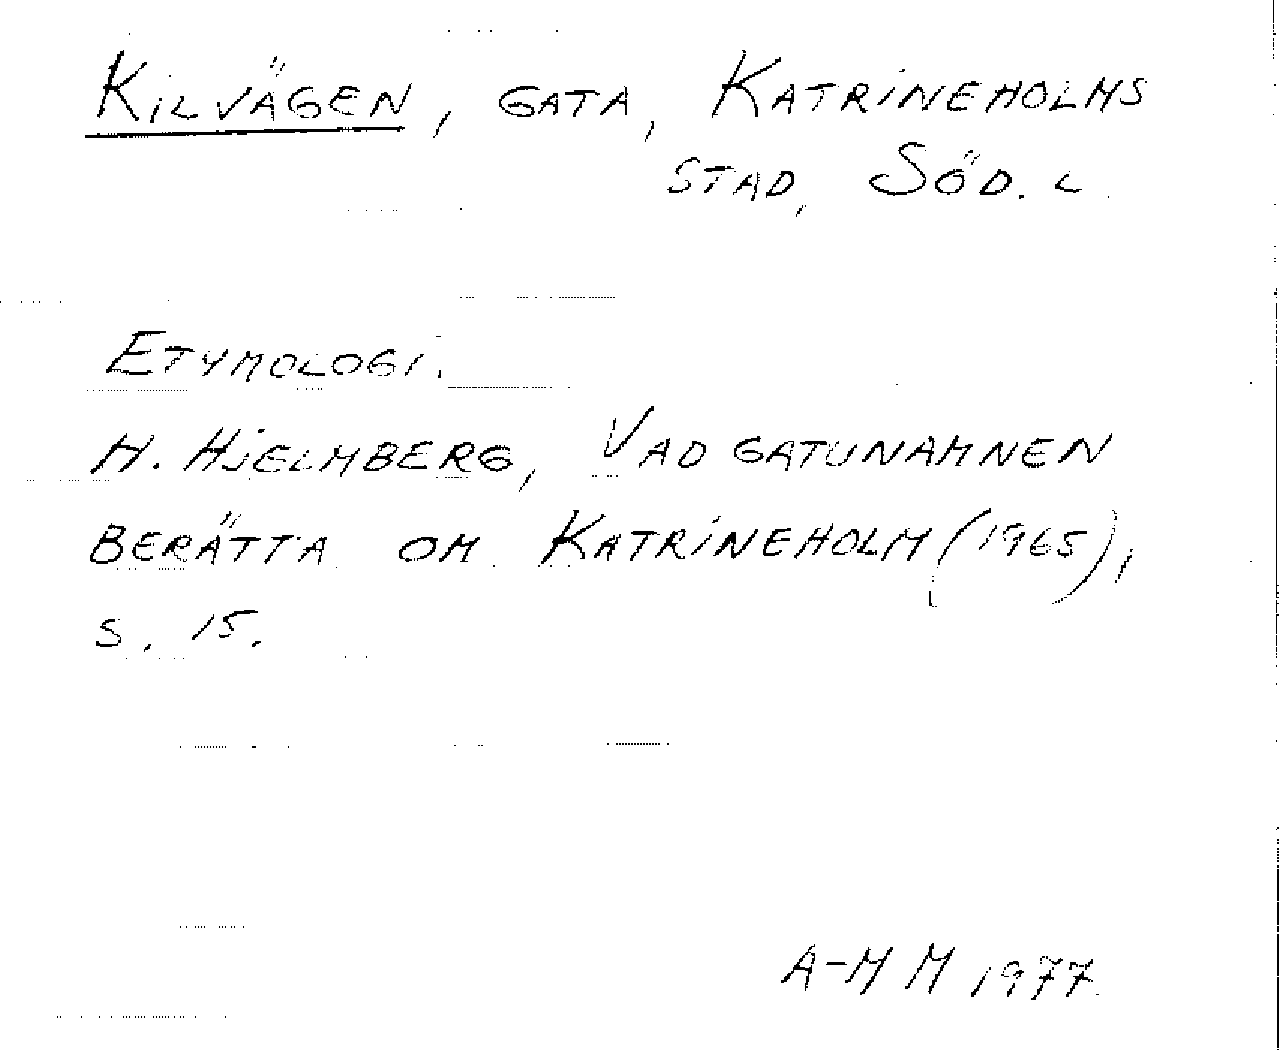 KILVÄGEN, GATA, KATRINEHOLMS
STAD, SÖD. L
ETYMOLOGI:
H. HJELMBERG, VAD GATUNAMNEN
BERÄTTA OM KATRINEHOLM (1965),
S. 15.
A-M M 1977